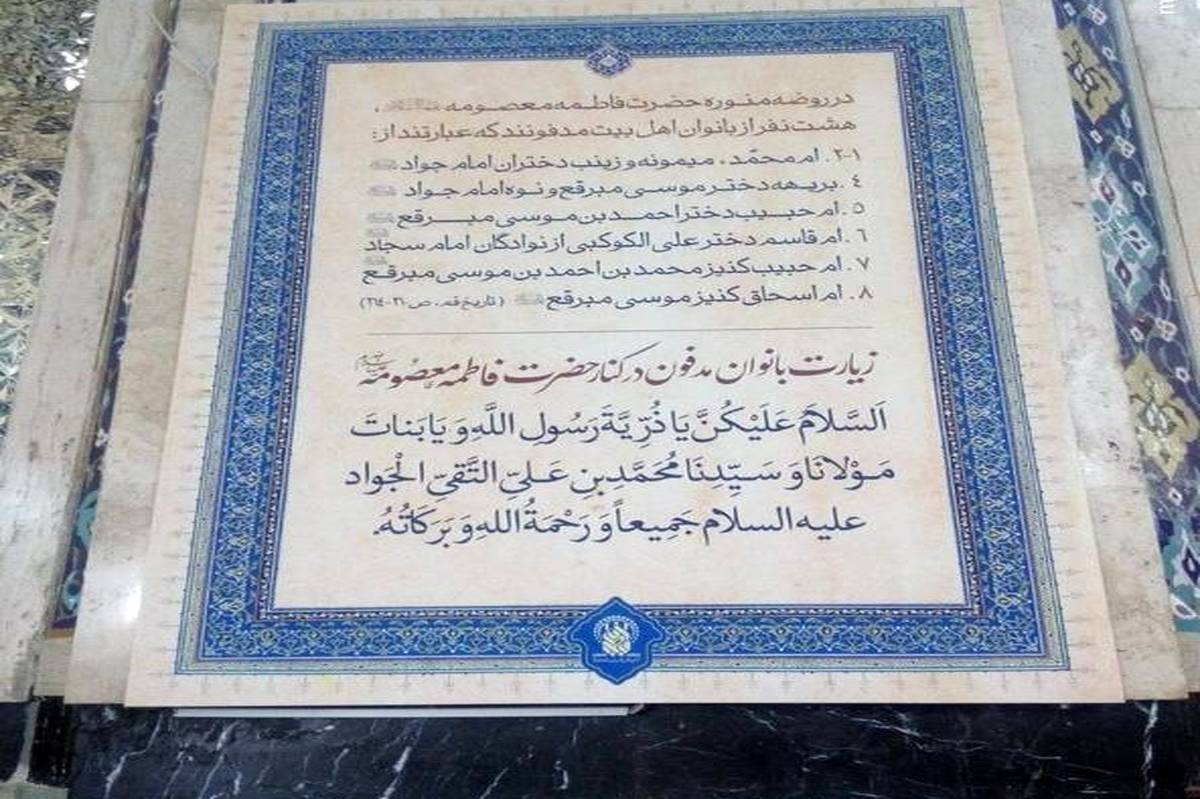 در روضه منوره حضرت فاطمه معصومه ،
هشت نفر از بانوان اهل بیت مدفونند که عبارتند از:
۱-۲. ام محمّد، میمونه و زینب دختران امام جواد
٤. بریهه دختر موسی مبرقع و نوه امام جواد
۵. ام حبیب دختر احمد بن موسی مبرقع
٦. ام قاسم دختر علی الکوکبی از نوادگان امام سجاد
۷. ام حبیب کنیز محمد بن احمد بن موسی مبرقع
۸. ام اسحاق کنیز موسی مبرقع (تاریخ قم، ص
زیارت بانوان مدفون در کنار حضرت فاطمه معصومه
اَلسَّلامَ عَلَیْکُنَّ یَا ذُرِّیَّةَ رَسُولِ اللَّهِ وَ یَا بَناتَ
مَوْلانَا وَ سَیِّدِنَا مُحَمَّدِ بنِ عَلیّ التَّقیّ الْجَواد
علیه السلام جَمِیعاً وَ رَحْمَةُ اللهِ وَ بَرَکَاتُهُ.